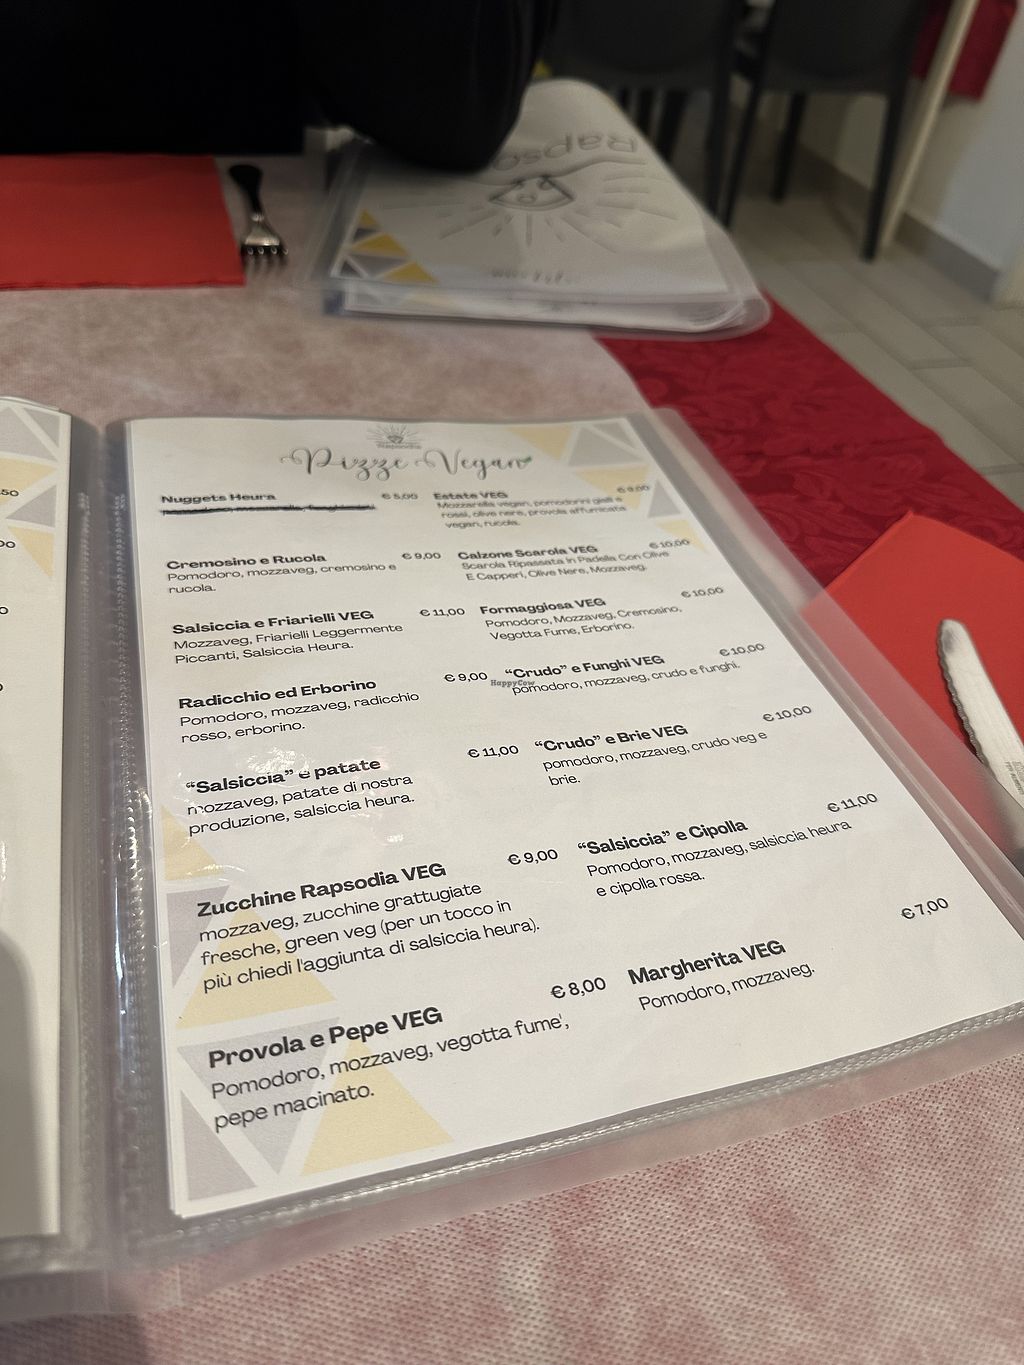 Rapso
Rapsodia
Pizze Vegan
Nuggets Heura € 5,00
Cremosino e Rucola € 9,00
Pomodoro, mozzaveg, cremosino e
rucola.
Salsiccia e Friarielli VEG € 11,00
Mozzaveg, Friarielli Leggermente
Piccanti, Salsiccia Heura.
Radicchio ed Erborino € 9,00
Pomodoro, mozzaveg, radicchio
rosso, erborino.
"Salsiccia" e patate € 11,00
mozzaveg, patate di nostra
produzione, salsiccia heura.
Zucchine Rapsodia VEG € 9,00
mozzaveg, zucchine grattugiate
fresche, green veg (per un tocco in
più chiedi l'aggiunta di salsiccia heura).
Provola e Pepe VEG € 8,00
Pomodoro, mozzaveg, vegotta fume',
pepe macinato.
Estate VEG € 9,00
Mozzarella vegan, pomodorini gialli e
rossi, olive nere, provola affumicata
vegan, rucola.
Calzone Scarola VEG € 10,00
Scarola Ripassata In Padella Con Olive
E Capperi, Olive Nere, Mozzaveg.
Formaggiosa VEG € 10,00
Pomodoro, Mozzaveg, Cremosino,
Vegotta Fume, Erborino.
"Crudo" e Funghi VEG € 10,00
pomodoro, mozzaveg, crudo e funghi.
"Crudo" e Brie VEG € 10,00
pomodoro, mozzaveg, crudo veg e
brie.
"Salsiccia" e Cipolla € 11,00
Pomodoro, mozzaveg, salsiccia heura
e cipolla rossa.
Margherita VEG € 7,00
Pomodoro, mozzaveg.
HappyCow